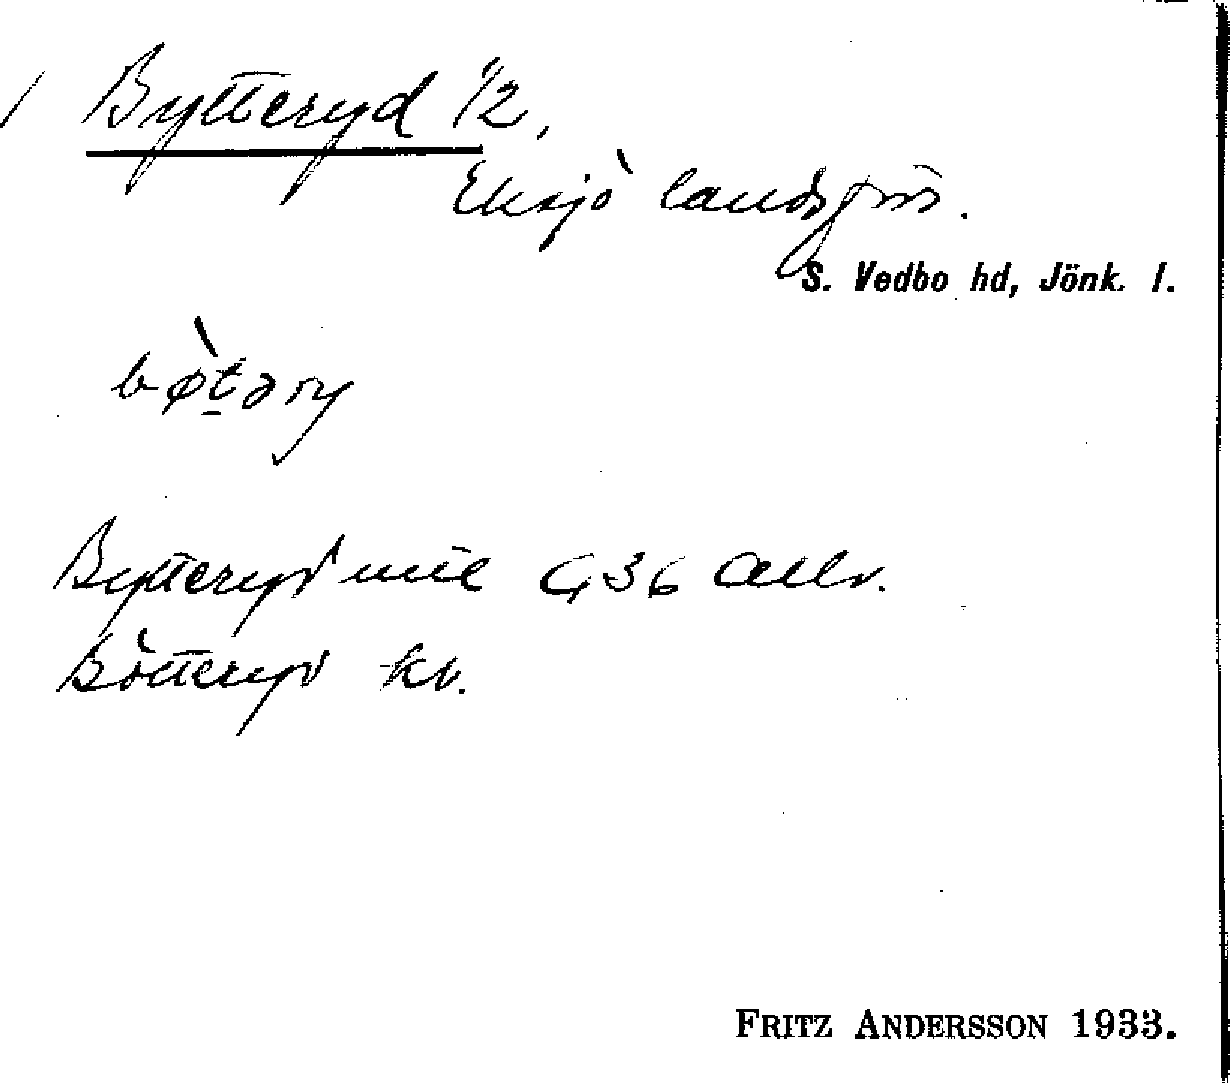 Bytteryd 1/2,
Eksjö landsförs.
S. Vedbo hd, Jönk. l.
bø̀təry
Bytteryd
Bötteryd kb.
FRITZ ANDERSSON 1933.